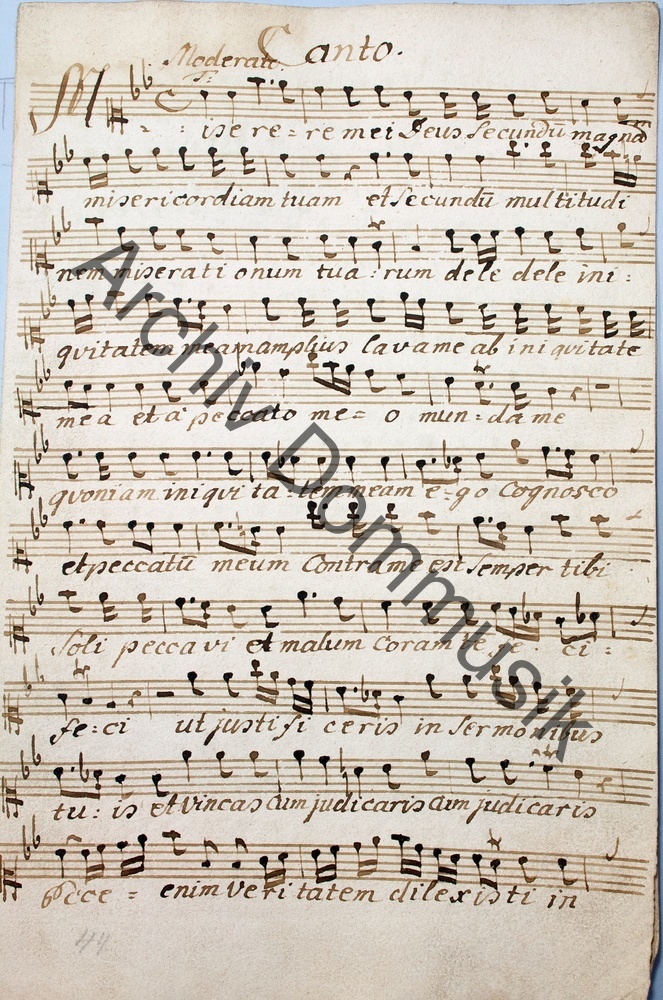 Canto.
Moderate.
T:
Misere re = re mei Deus secundū magnā
misericordiam tuam et secundū multitudi
nem miserati onum tua : rum dele dele ini :
qvitatem meam amplius lava me ab ini qvitate
mea et a peccato me = o mun = da me
qvoniam iniqvi ta = tem meam e = go Cognosco
et peccatū meum Contra me est semper tibi
soli pecca vi et malum Coram te fe : ci :
fe = ci ut justi fi ceris in sermonibus
tu : is et vincas cum judicaris cum judicaris
Ecce = enim veri tatem dilex isti in
44
Archiv Dommusik